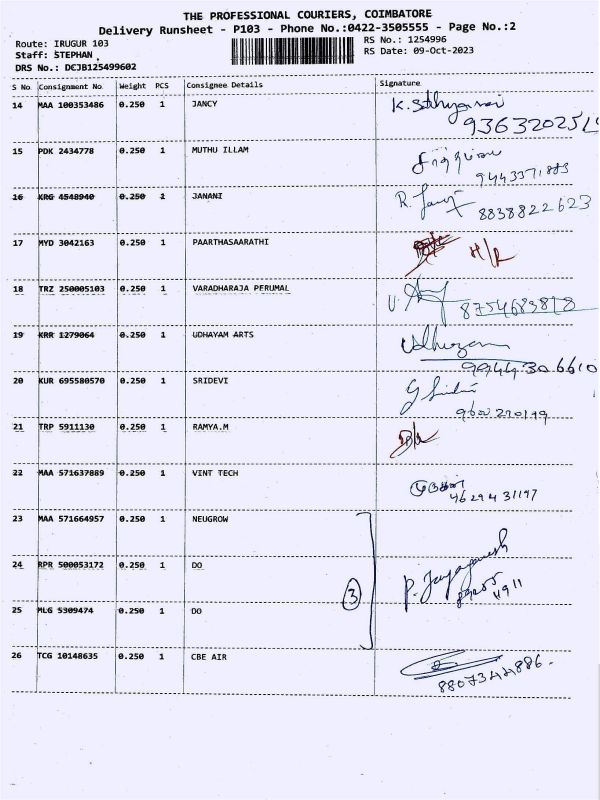 THE PROFESSIONAL COURIERS, COIMBATORE
Delivery Runsheet - P103 - Phone No.:0422-3505555 - Page No.:2
Route: IRUGUR 103
RS No.: 1254996
Staff: STEPHAN
RS Date: 09-Oct-2023
DRS No.: DCJB125499602
S No Consignment No Weight PCS Consignee Details Signature
14 MAA 100353486 0.250 1 JANCY
9363202519
15 PDK 2434778 0.250 1 MUTHU ILLAM
9443371883
16 KRG 4548940 0.250 1 JANANI
8838822623
17 MYD 3042163 0.250 1 PAARTHASAARATHI
18 TRZ 250005103 0.250 1 VARADHARAJA PERUMAL
8754689818
19 KRR 1279064 0.250 1 UDHAYAM ARTS
9944306610
20 KUR 695580570 0.250 1 SRIDEVI
21 TRP 5911130 0.250 1 RAMYA.M
22 MAA 571637889 0.250 1 VINT TECH
23 MAA 571664957 0.250 1 NEUGROW
24 RPR 500053172 0.250 1 DO
3
25 MLG 5309474 0.250 1 DO
26 TCG 10148635 0.250 1 CBE AIR
8807344886.